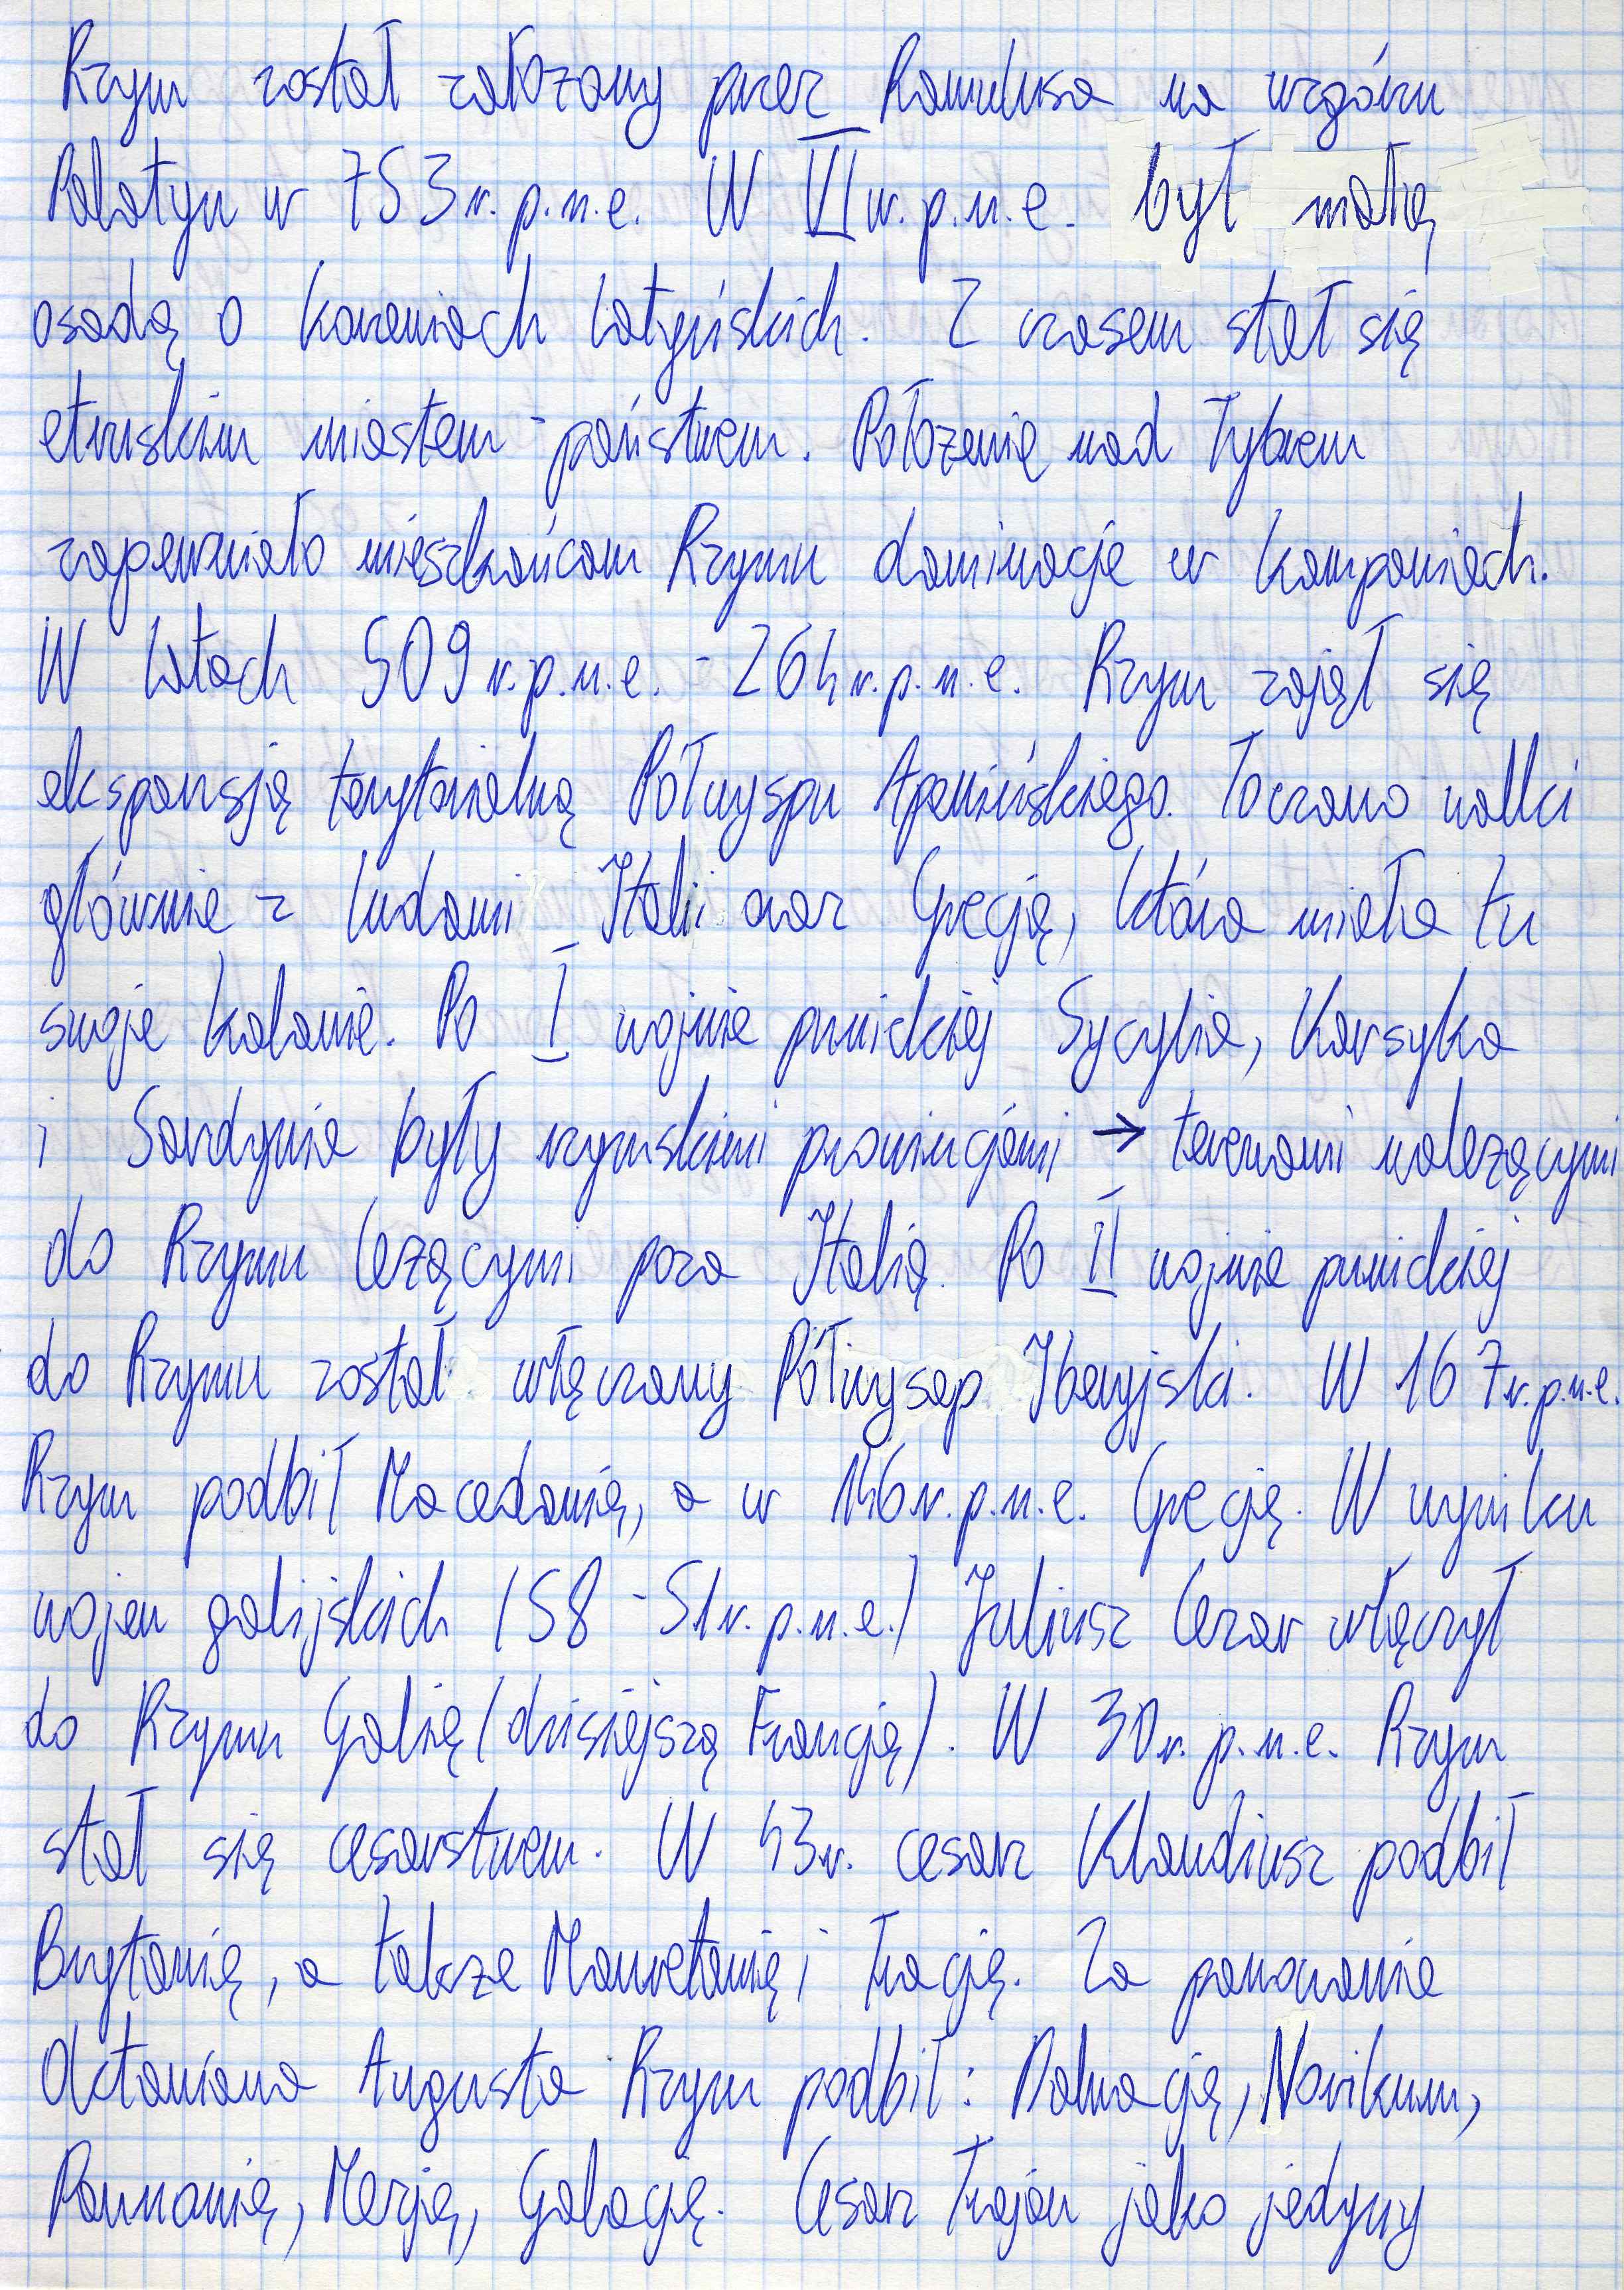 Rzym został założony przez Romulusa na wzgórzu
Palatyn w 753r.p.n.e. W VIw.p.n.e. był małą
osadą o korzeniach latyńskich. Z czasem stał się
etruskim miastem-państwem. Położenie nad Tybrem
zapewniało mieszkańcom Rzymu dominację w kampaniach.
W latach 509r.p.n.e. - 264r.p.n.e. Rzym zajął się
ekspansją terytorialną Półwyspu Apenińskiego. Toczono walki
głównie z ludami Italii oraz Grecją, która miała tu
swoje kolonie. Po I wojnie punickiej Sycylia, Korsyka
i Sardynia były rzymskimi prowincjami → terenami należącymi
do Rzymu leżącymi poza Italią. Po II wojnie punickiej
do Rzymu został włączony Półwysep Iberyjski. W 167r.p.n.e.
Rzym podbił Macedonię, a w 146r.p.n.e. Grecję. W wyniku
wojen galijskich (58 - 51r.p.n.e.) Juliusz Cezar włączył
do Rzymu Galię (dzisiejszą Francję). W 30r.p.n.e. Rzym
stał się cesarstwem. W 43r. cesarz Klaudiusz podbił
Brytanię, a także Mauretanię i Trację. Za panowania
Oktawiana Augusta Rzym podbił: Dalmację, Norikum,
Pannonię, Mezję, Galację. Cesarz Trajan jako jedyny